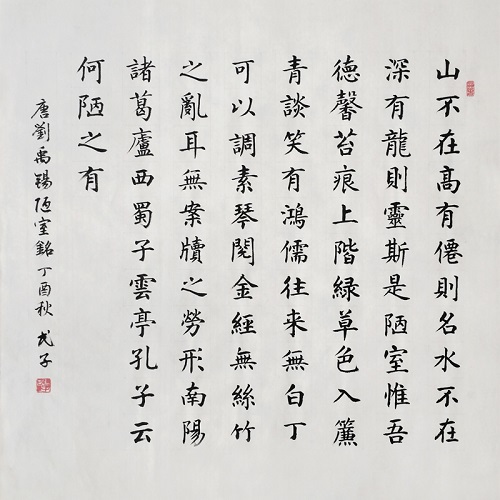 山不在高有僊則名水不在
深有龍則靈斯是陋室惟吾
德馨苔痕上階緑草色入簾
青談笑有鴻儒往来無白丁
可以調素琴閱金經無絲竹
之亂耳無案牘之勞形南陽
諸葛廬西蜀子雲亭孔子云
何陋之有
唐劉禹錫陋室銘丁酉秋子